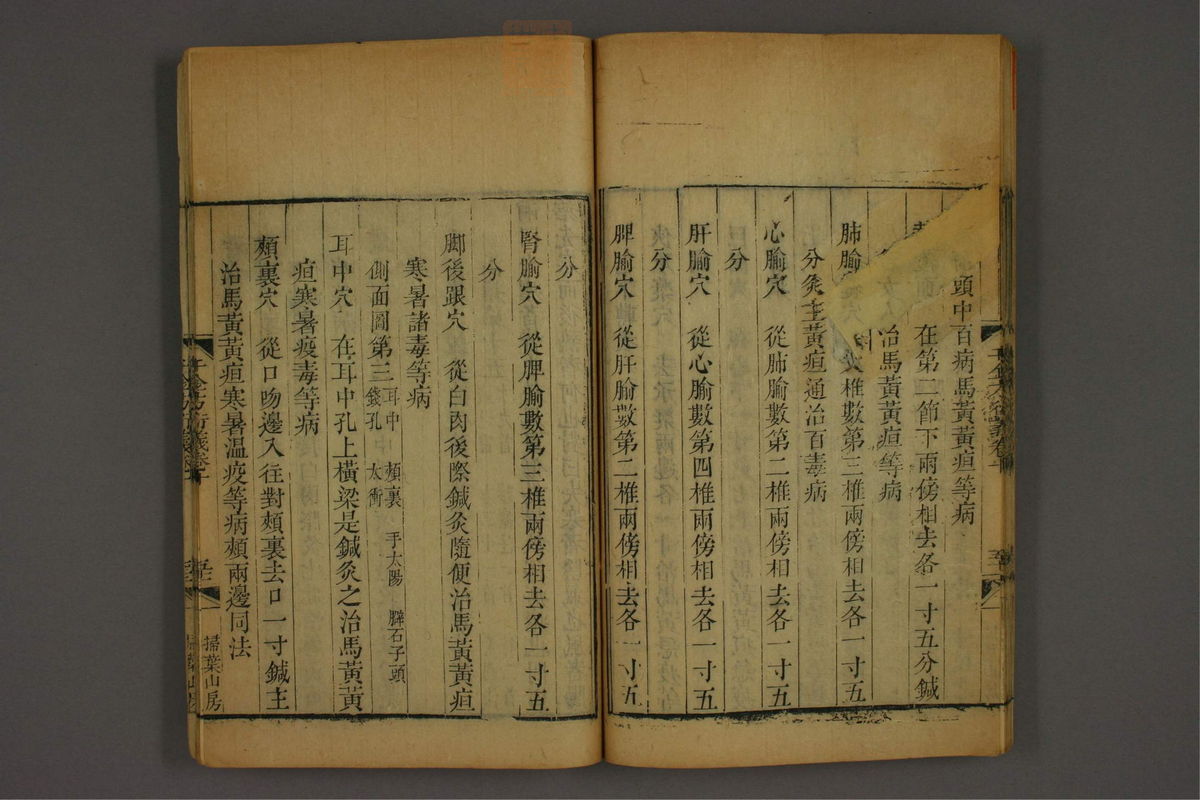 頭中百病馬黃黃疸等病
在第二節下兩傍相去各一寸五分鍼
治馬黃黃疸等病
肺腧穴 從大椎數第三椎兩傍相去各一寸五
分灸主黃疸通治百毒病
心腧穴 從肺腧數第二椎兩傍相去各一寸五
分
肝腧穴 從心腧數第四椎兩傍相去各一寸五
分
脾腧穴 從肝腧數第二椎兩傍相去各一寸五
分
腎腧穴 從脾腧數第三椎兩傍相去各一寸五
分
脚後跟穴 從白肉後際鍼灸隨便治馬黃黃疸
寒暑諸毒等病
側面圖第三 耳中 頰裏 手太陽 臂石子頭
錢孔 太衝
耳中穴 在耳中孔上橫梁是鍼灸之治馬黃黃
疸寒暑疫毒等病
頰裏穴 從口吻邊入往對頰裏去口一寸鍼主
治馬黃黃疸寒暑溫疫等病頰兩邊同法
掃葉山房